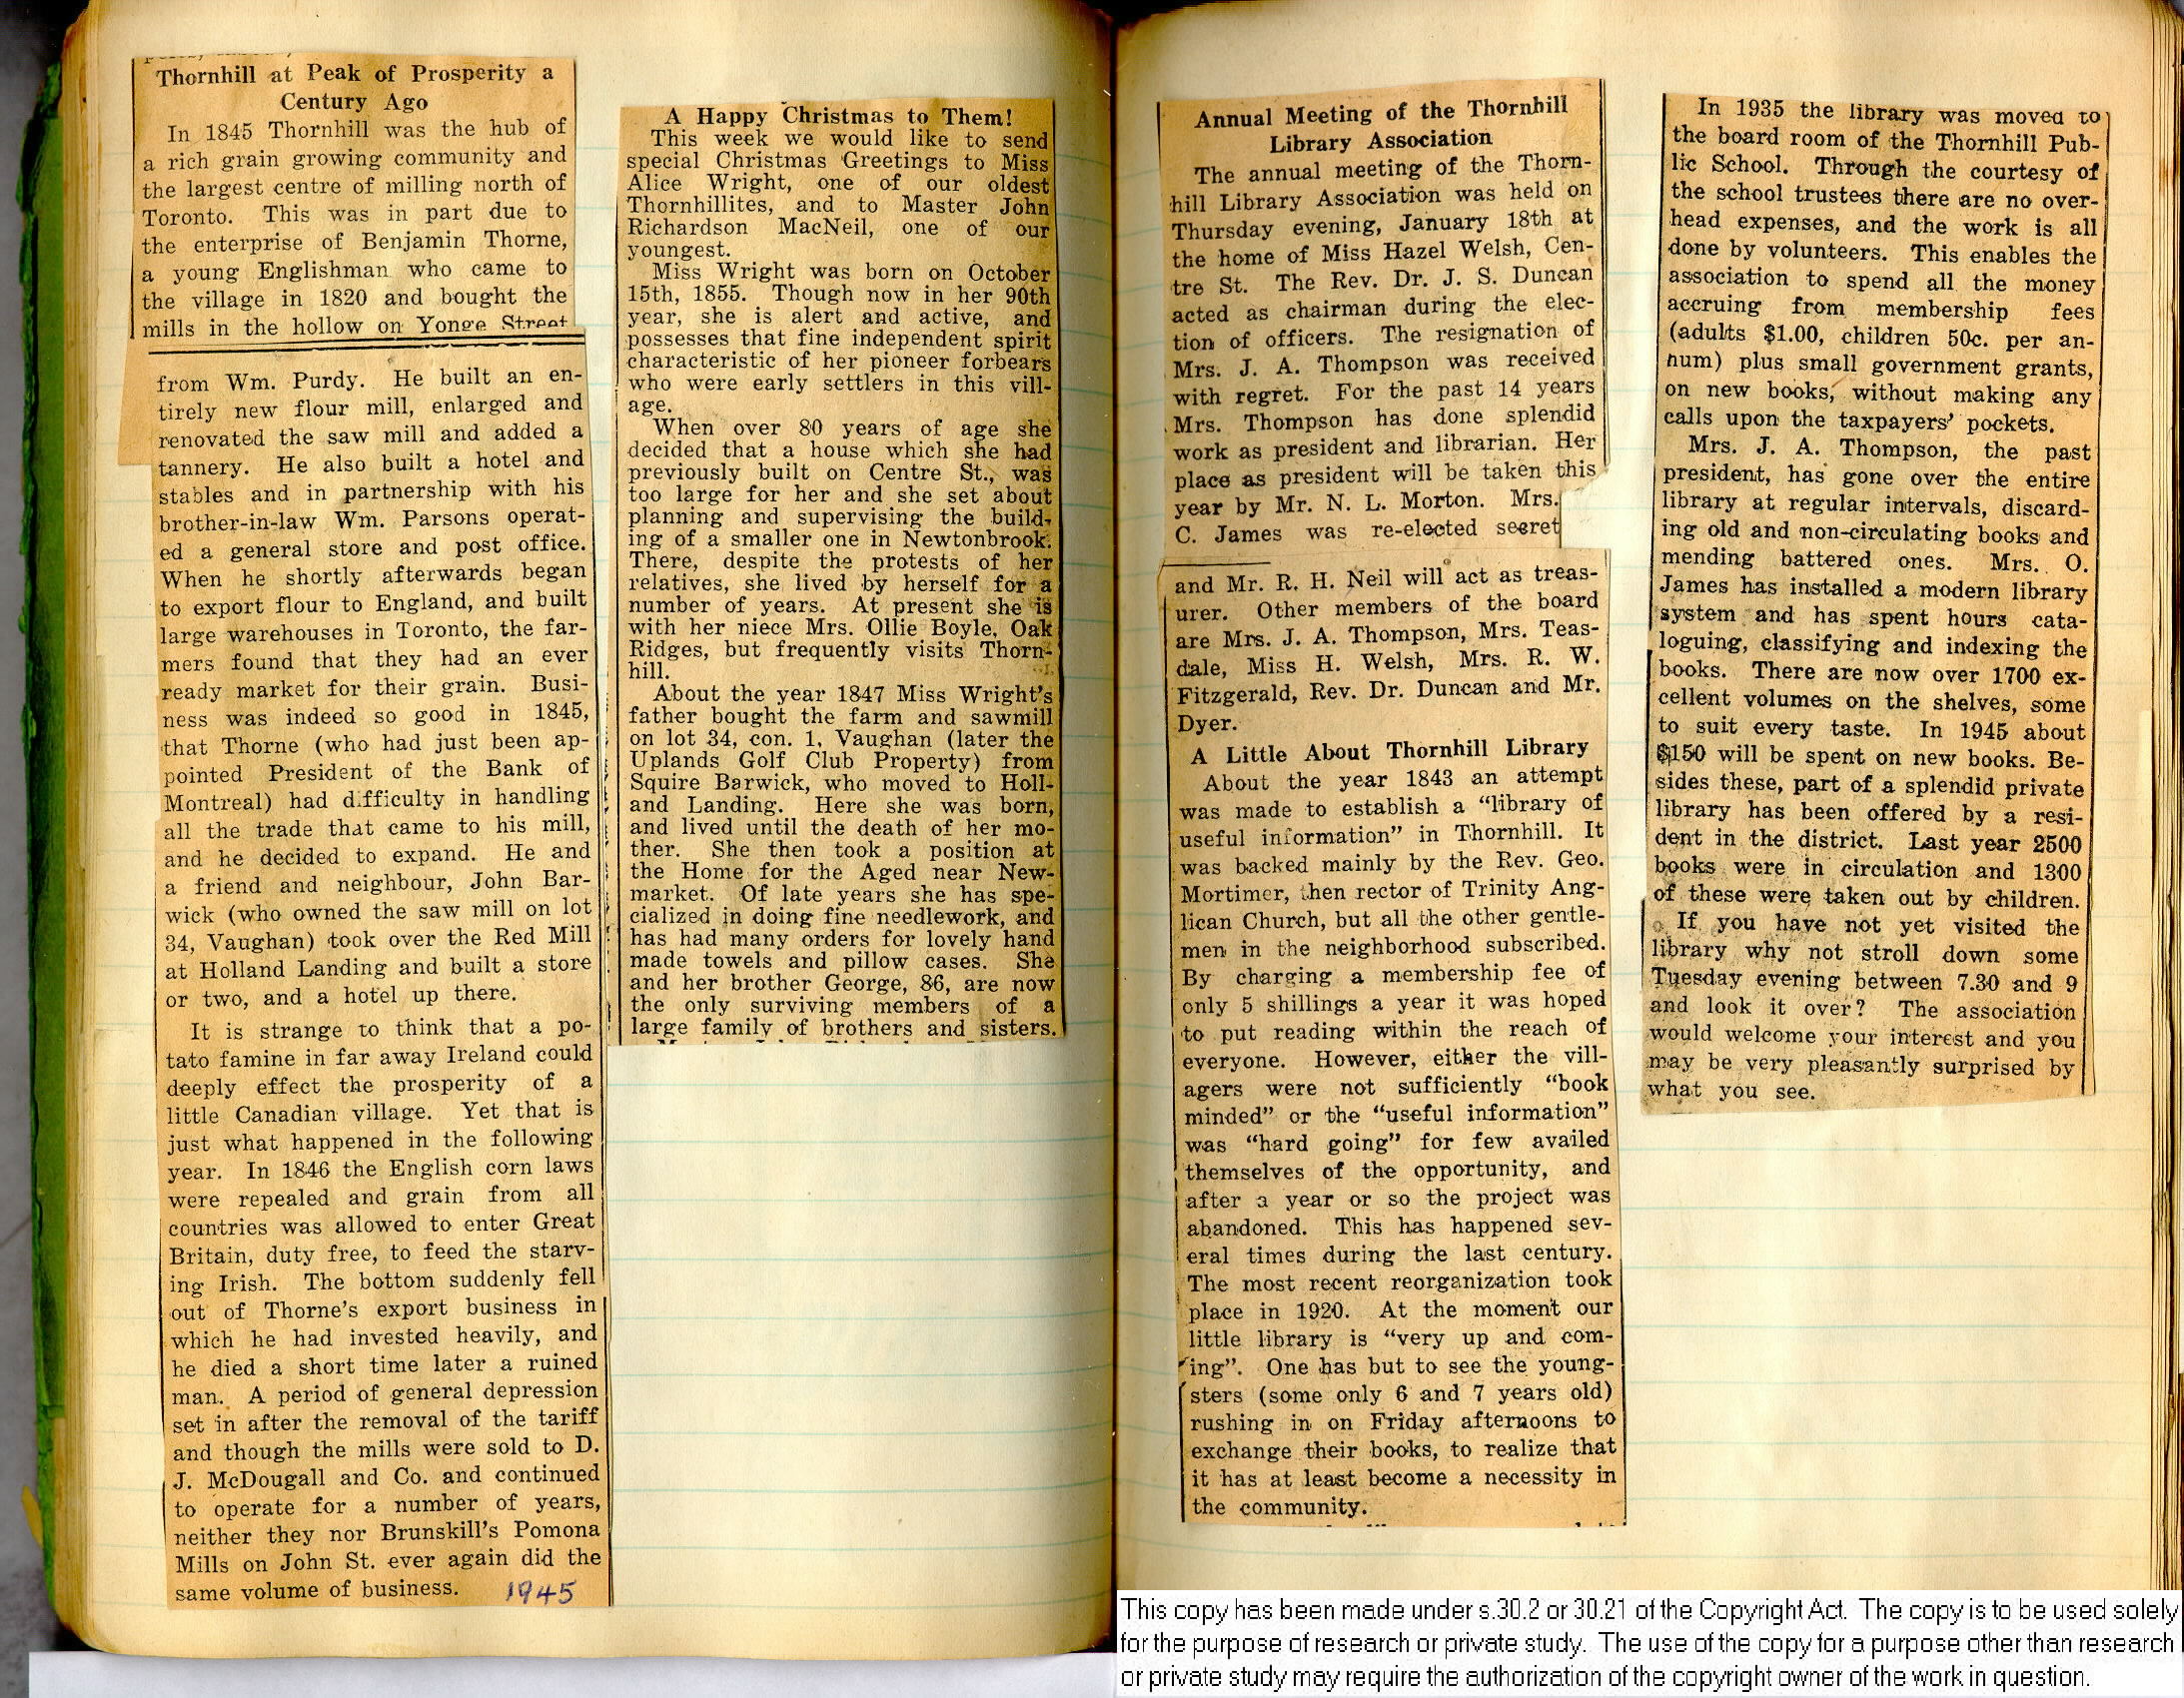 Thornhill at Peak of Prosperity a
Century Ago
In 1845 Thornhill was the hub of
a rich grain growing community and
the largest centre of milling north of
Toronto. This was in part due to
the enterprise of Benjamin Thorne,
a young Englishman who came to
the village in 1820 and bought the
mills in the hollow on Yonge Street
from Wm. Purdy. He built an en-
tirely new flour mill, enlarged and
renovated the saw mill and added a
tannery. He also built a hotel and
stables and in partnership with his
brother-in-law Wm. Parsons operat-
ed a general store and post office.
When he shortly afterwards began
to export flour to England, and built
large warehouses in Toronto, the far-
mers found that they had an ever
ready market for their grain. Busi-
ness was indeed so good in 1845,
that Thorne (who had just been ap-
pointed President of the Bank of
Montreal) had difficulty in handling
all the trade that came to his mill,
and he decided to expand. He and
a friend and neighbour, John Bar-
wick (who owned the saw mill on lot
34, Vaughan) took over the Red Mill
at Holland Landing and built a store
or two, and a hotel up there.
It is strange to think that a po-
tato famine in far away Ireland could
deeply effect the prosperity of a
little Canadian village. Yet that is
just what happened in the following
year. In 1846 the English corn laws
were repealed and grain from all
countries was allowed to enter Great
Britain, duty free, to feed the starv-
ing Irish. The bottom suddenly fell
out of Thorne's export business in
which he had invested heavily, and
he died a short time later a ruined
man. A period of general depression
set in after the removal of the tariff
and though the mills were sold to D.
J. McDougall and Co. and continued
to operate for a number of years,
neither they nor Brunskill's Pomona
Mills on John St. ever again did the
same volume of business. 1945
A Happy Christmas to Them!
This week we would like to send
special Christmas Greetings to Miss
Alice Wright, one of our oldest
Thornhillites, and to Master John
Richardson MacNeil, one of our
youngest.
Miss Wright was born on October
15th, 1855. Though now in her 90th
year, she is alert and active, and
possesses that fine independent spirit
characteristic of her pioneer forbears
who were early settlers in this vill-
age.
When over 80 years of age she
decided that a house which she had
previously built on Centre St., was
too large for her and she set about
planning and supervising the build-
ing of a smaller one in Newtonbrook.
There, despite the protests of her
relatives, she lived by herself for a
number of years. At present she is
with her niece Mrs. Ollie Boyle, Oak
Ridges, but frequently visits Thorn-
hill.
About the year 1847 Miss Wright's
father bought the farm and sawmill
on lot 34, con. 1, Vaughan (later the
Uplands Golf Club Property) from
Squire Barwick, who moved to Holl-
and Landing. Here she was born,
and lived until the death of her mo-
ther. She then took a position at
the Home for the Aged near New-
market. Of late years she has spe-
cialized in doing fine needlework, and
has had many orders for lovely hand
made towels and pillow cases. She
and her brother George, 86, are now
the only surviving members of a
large family of brothers and sisters.
Annual Meeting of the Thornhill
Library Association
The annual meeting of the Thorn-
hill Library Association was held on
Thursday evening, January 18th at
the home of Miss Hazel Welsh, Cen-
tre St. The Rev. Dr. J. S. Duncan
acted as chairman during the elec-
tion of officers. The resignation of
Mrs. J. A. Thompson was received
with regret. For the past 14 years
Mrs. Thompson has done splendid
work as president and librarian. Her
place as president will be taken this
year by Mr. N. L. Morton. Mrs.
C. James was re-elected secret
and Mr. R. H. Neil will act as treas-
urer. Other members of the board
are Mrs. J. A. Thompson, Mrs. Teas-
dale, Miss H. Welsh, Mrs. R. W.
Fitzgerald, Rev. Dr. Duncan and Mr.
Dyer.
A Little About Thornhill Library
About the year 1843 an attempt
was made to establish a "library of
useful information" in Thornhill. It
was backed mainly by the Rev. Geo.
Mortimer, then rector of Trinity Ang-
lican Church, but all the other gentle-
men in the neighborhood subscribed.
By charging a membership fee of
only 5 shillings a year it was hoped
to put reading within the reach of
everyone. However, either the vill-
agers were not sufficiently "book
minded" or the "useful information"
was "hard going" for few availed
themselves of the opportunity, and
after a year or so the project was
abandoned. This has happened sev-
eral times during the last century.
The most recent reorganization took
place in 1920. At the moment our
little library is "very up and com-
ing". One has but to see the young-
sters (some only 6 and 7 years old)
rushing in on Friday afternoons to
exchange their books, to realize that
it has at least become a necessity in
the community.
In 1935 the library was moved to
the board room of the Thornhill Pub-
lic School. Through the courtesy of
the school trustees there are no over-
head expenses, and the work is all
done by volunteers. This enables the
association to spend all the money
accruing from membership fees
(adults $1.00, children 50c. per an-
num) plus small government grants,
on new books, without making any
calls upon the taxpayers' pockets.
Mrs. J. A. Thompson, the past
president, has gone over the entire
library at regular intervals, discard-
ing old and non-circulating books and
mending battered ones. Mrs. O.
James has installed a modern library
system and has spent hours cata-
loguing, classifying and indexing the
books. There are now over 1700 ex-
cellent volumes on the shelves, some
to suit every taste. In 1945 about
$150 will be spent on new books. Be-
sides these, part of a splendid private
library has been offered by a resi-
dent in the district. Last year 2500
books were in circulation and 1300
of these were taken out by children.
If you have not yet visited the
library why not stroll down some
Tuesday evening between 7.30 and 9
and look it over? The association
would welcome your interest and you
may be very pleasantly surprised by
what you see.
This copy has been made under s.30.2 or 30.21 of the Copyright Act. The copy is to be used solely
for the purpose of research or private study. The use of the copy for a purpose other than research
or private study may require the authorization of the copyright owner of the work in question.